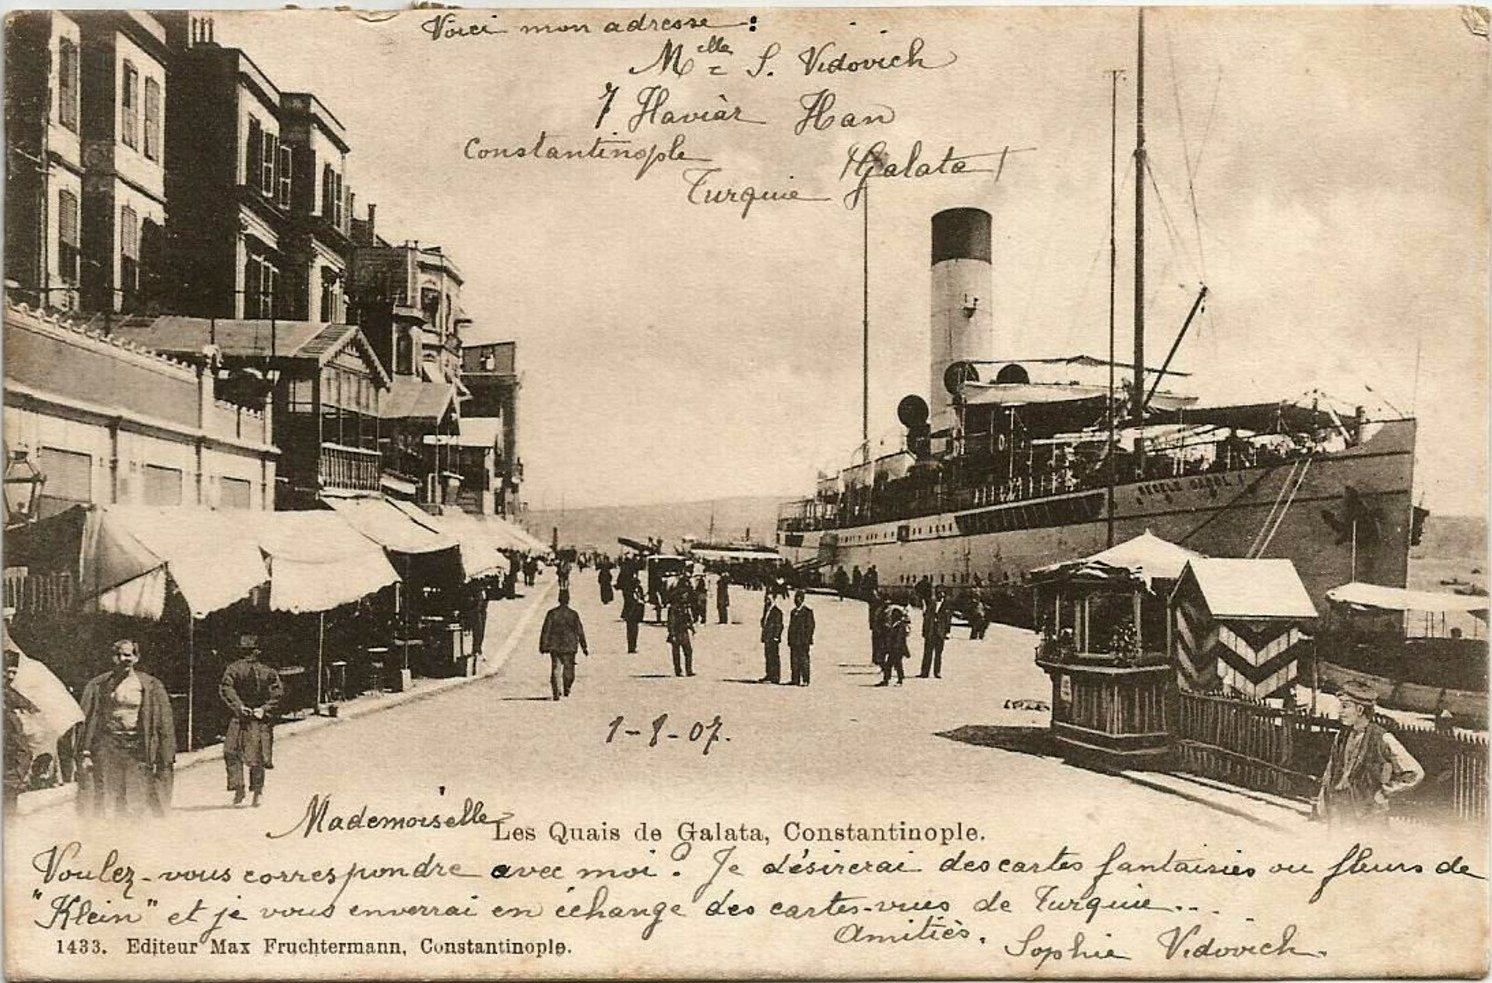 Voici mon adresse :
Mlle S. Vidovich
7 Haviàr Han
Constantinople Galata
Turquie
REGELE CAROL I
1-8-07.
Mademoiselle
Les Quais de Galata, Constantinople.
Voulez-vous correspondre avec moi? Je désirerai des cartes fantaisies ou fleurs de
"Klein" et je vous enverrai en échange des cartes-vues de Turquie...
Amitiés.
Sophie Vidovich.
1433. Editeur Max Fruchtermann, Constantinople.